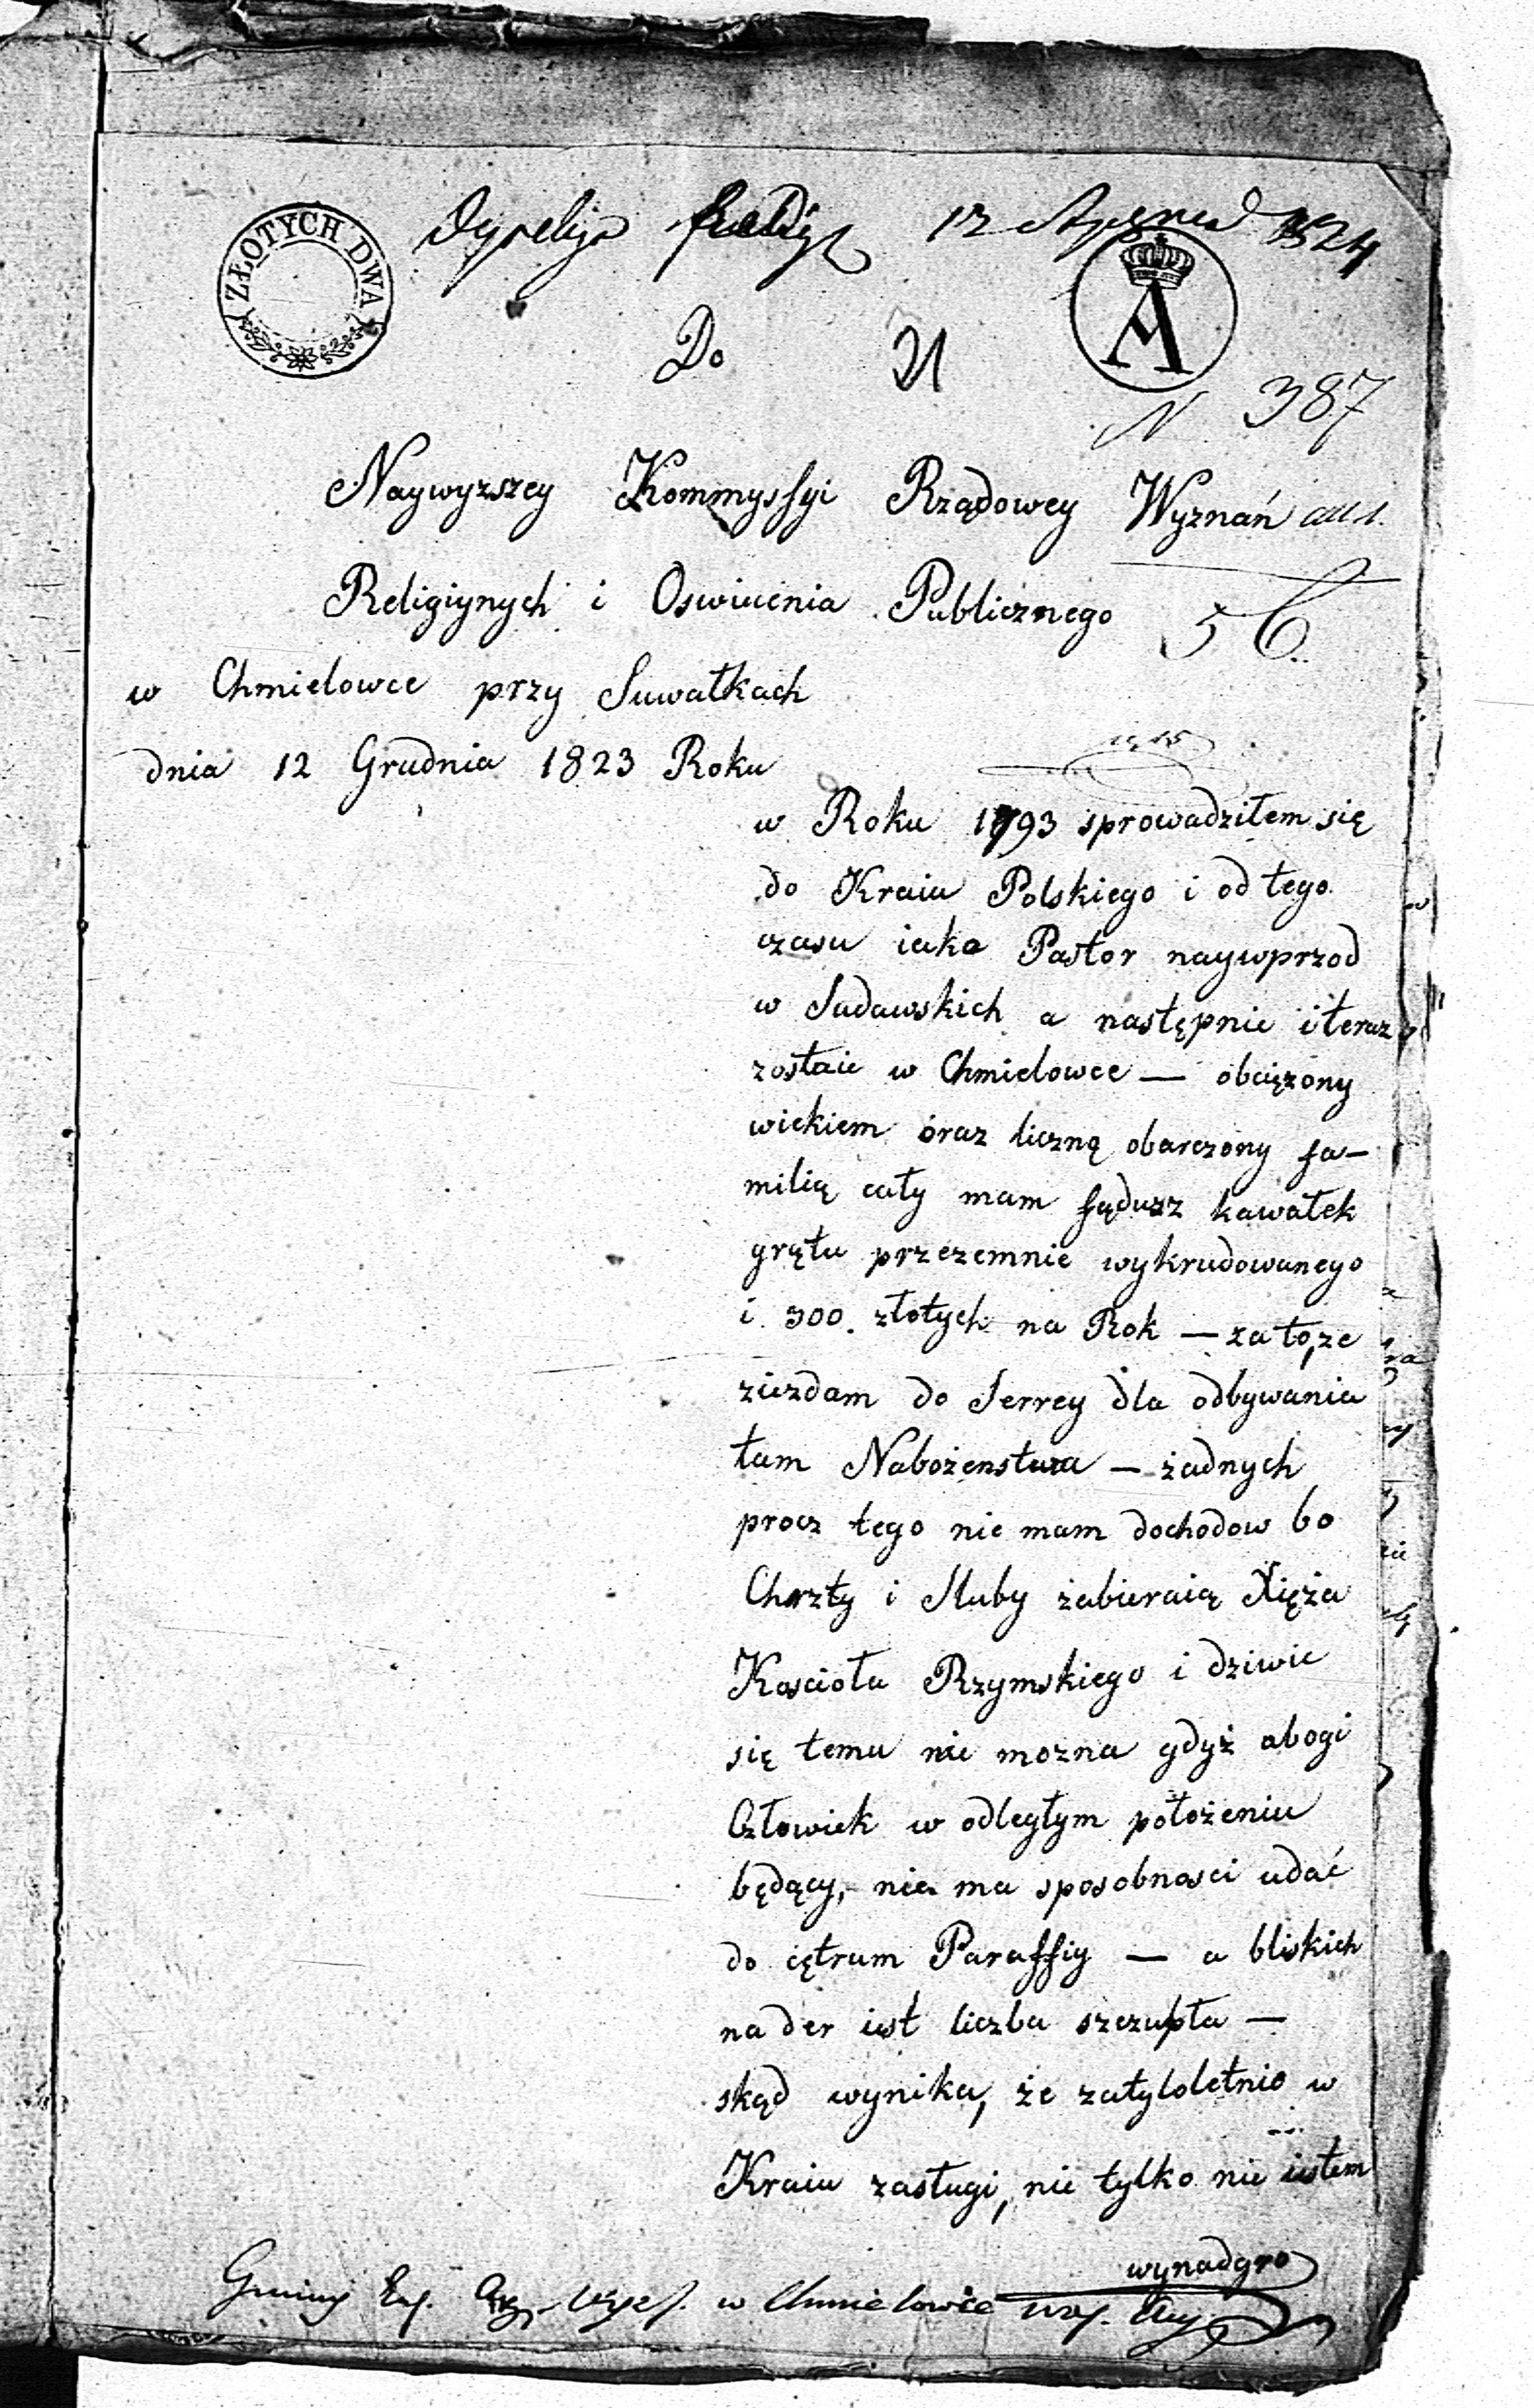 ZŁOTYCH DWA
12 1824
Do
A
N 387
Naywyzszey Kommyssyi Rządowey Wyznań
Religiynych i Oswiecenia Publicznego
5
w Chmielowce przy Suwałkach
dnia 12 Grudnia 1823 Roku
w Roku 1793 sprowadziłem się
do Kraiu Polskiego i od tego
czasu iako Pastor naywprzod
w Sadawskich a następnie i teraz
zostaie w Chmielowce — obciężony
wiekiem oraz liczną obarczony fa-
milią cały mam fądusz kawałek
grętu przezemnie wykrudowanego
i 300. złotych na Rok — za to, ze
ziezdam do Serrey dla odbywania
tam Nabożenstwa — żadnych
procz tego nie mam dochodow bo
Chrzty i Sluby żabieraią Xięża
Koscioła Rzymskiego i dziwic
się temu nie mozna gdyż ubogi
Człowiek w odległym położeniu
będący, nie ma sposobnosci udać
do cętrum Paraffiy — a bliskich
nader iest liczba szczupła —
skąd wynika, że zatyloletnie w
Kraiu zasługi, nie tylko nie iestem
wynadgro
Gminy w Chmielowce